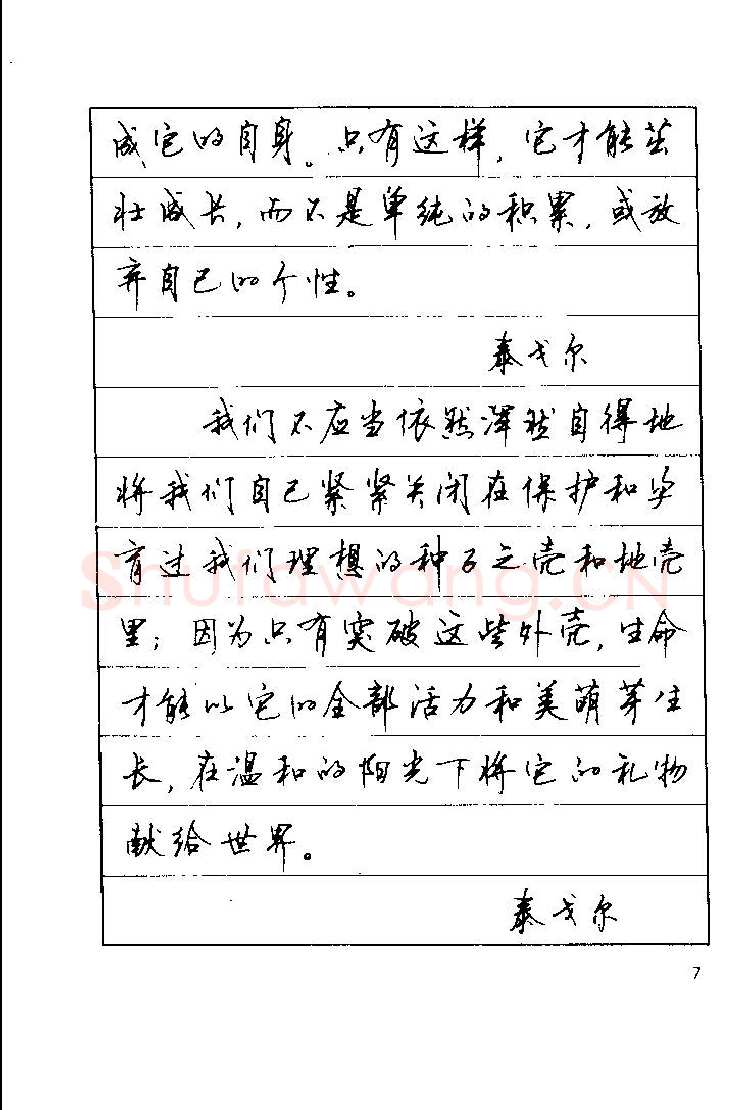 成它的自身。只有这样，它才能茁
壮成长，而不是单纯的积累，或放
弃自己的个性。
泰戈尔
我们不应当依然浑然自得地
将我们自己紧紧关闭在保护和孕
育过我们理想的种子之壳和地壳
里；因为只有突破这些外壳，生命
才能以它的全部活力和美萌芽生
长，在温和的阳光下将它的礼物
献给世界。
泰戈尔
7
Shufawang.CN